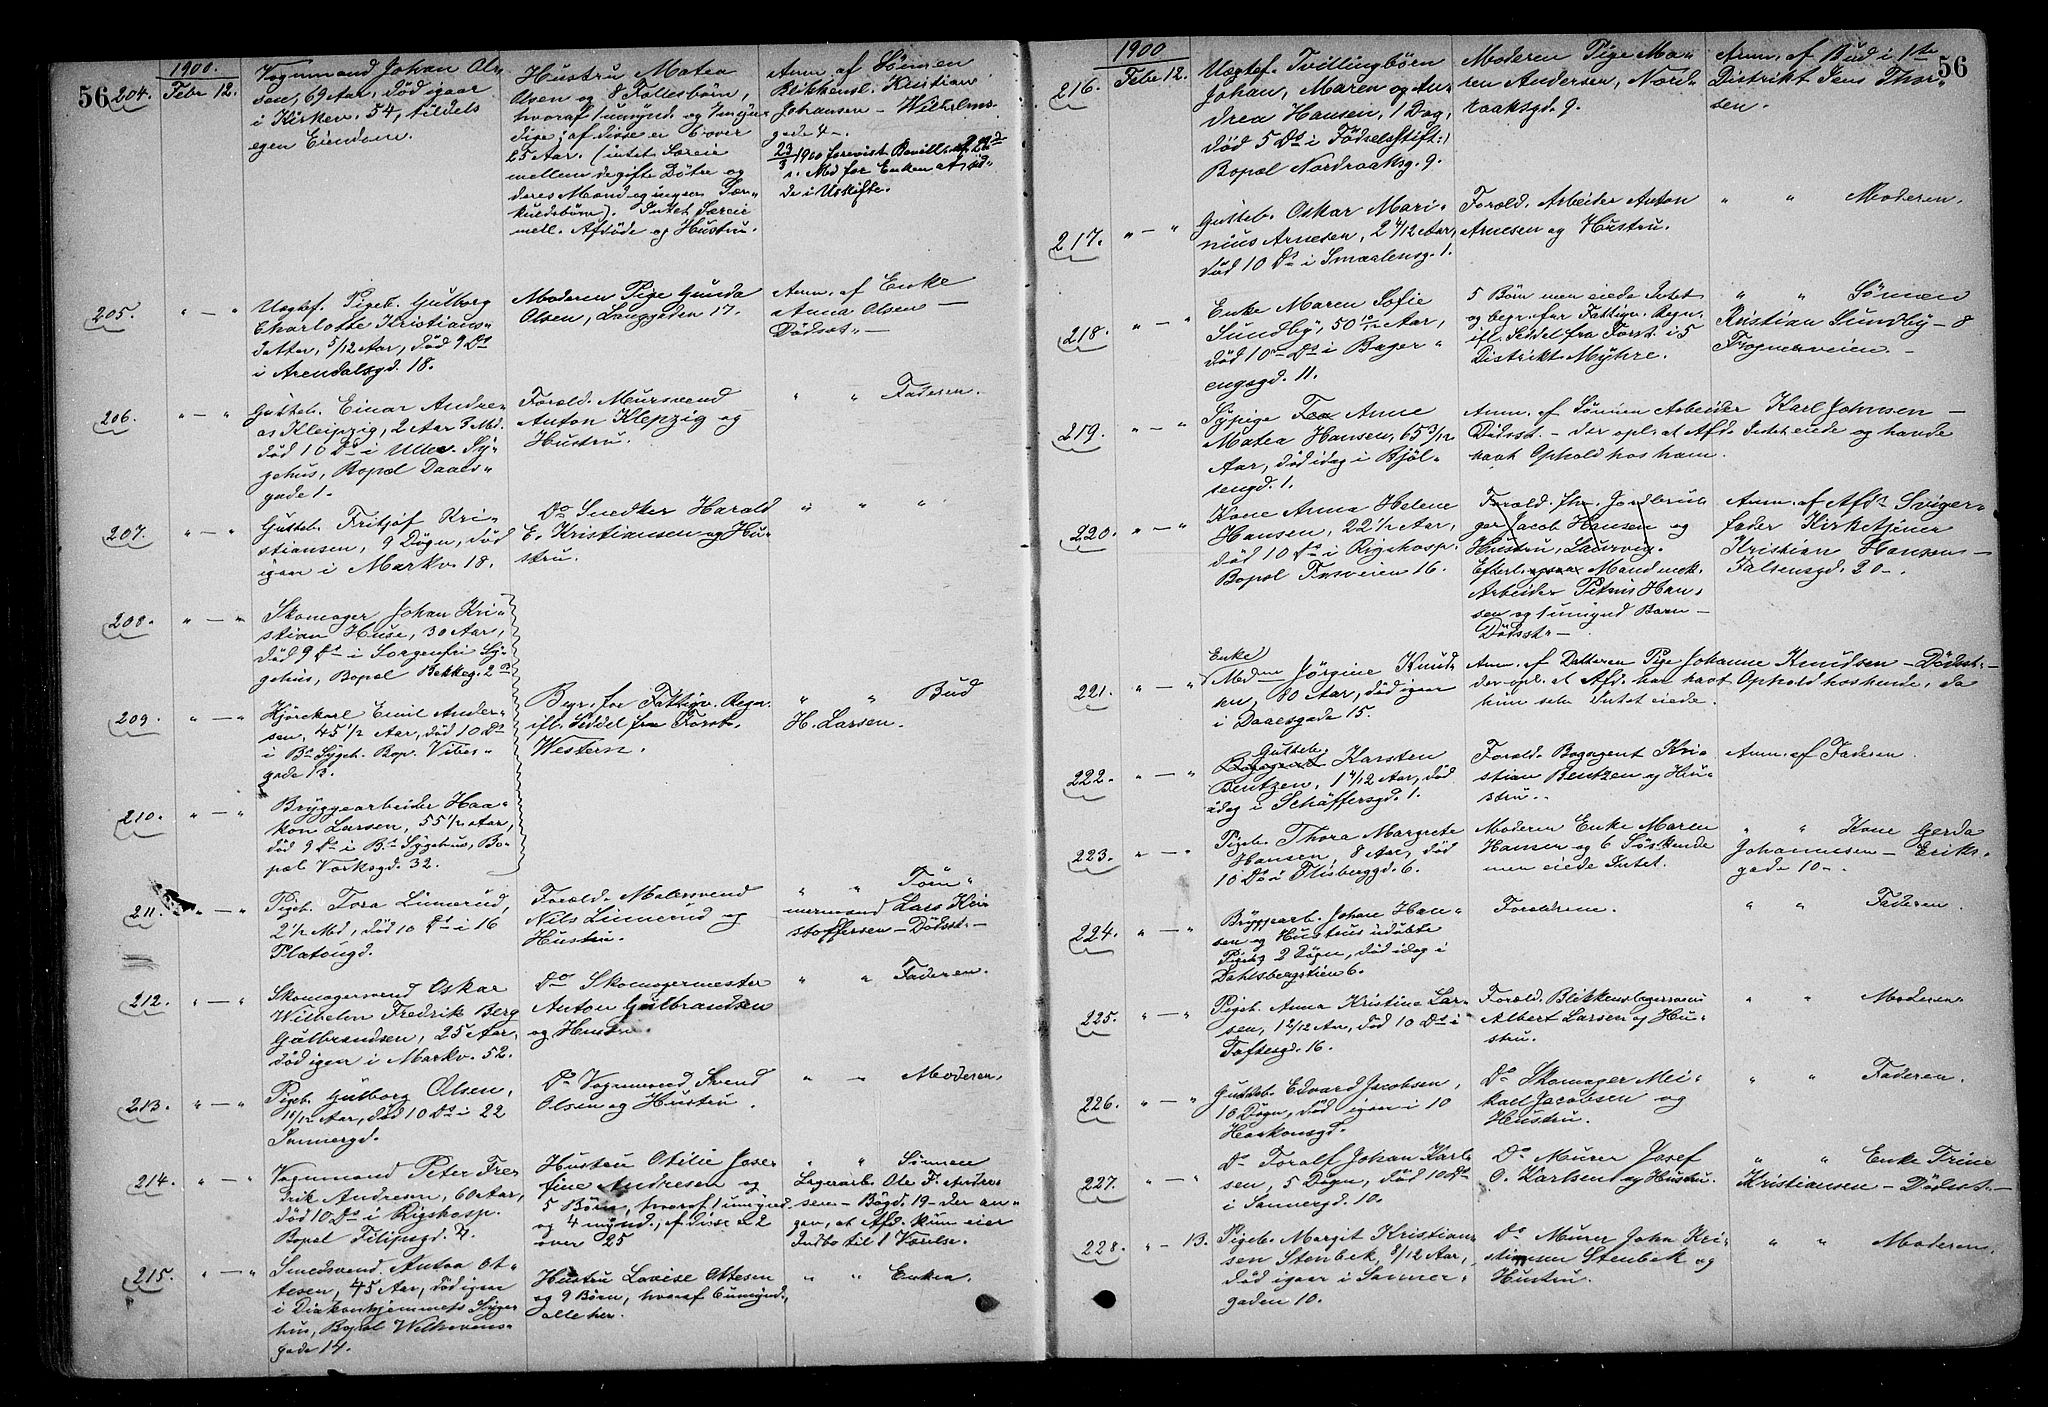 56
1900.
204. Febr 12. Vognmand Johan Ol-
sen, 69 Aar, død igaar
i Kirkev. 54, Afdøds
egen Eiendom.
Hustru Matea
Olsen og 8 Fællesbørn,
hvoraf 1 umynd. og 7 myn-
dige; af disse er 6 over
25 Aar. (intet Særeie
mellem de gifte Døtre og
deres Mænd og ingen Sær-
kuldsbørn). Intet Særeie
mell. Afdøde og Hustru.
Anm. af Sønnen
Blikkensl. Kristian
Johansen — Wilhelms-
gade 4 —.
23/3 1900 forevist Bevill. af 22d
s. Md for Enken at sid-
de i Uskifte.
205. " — " Uægtef. Pigeb. Gulborg
Charlotte Kristians-
datter, 5/12 Aar, død 9 Ds
i Arendalsgd. 18.
Moderen Pige Gunda
Olsen, Langgaden 17.
Anm. af Enke
Anna Olsen —
Dødsst. —
206. " — " Gutteb. Einar Andre-
as Kleipzig, 2 Aar 3 Md.
død 10 Ds i Ullev. Sy-
gehus, Bopæl Daaes-
gade 1.
Foræld. Mursvend
Anton Klepzig og
Hustru.
" " Faderen.
207. " — " Gutteb. Fritjof Kri-
stiansen, 9 Døgn, død
igaar i Markv. 18.
Do Snedker Harald
E. Kristiansen og Hu-
stru.
" " "
208. " — " Skomager Johan Kri-
stian Huse, 30 Aar,
død 9 Ds i Sorgenfri Sy-
gehus, Bopæl Bekkeg. 2 B
209. " — " Kjørekarl Emil Ander-
sen, 45 1/2 Aar, død 10 Ds
i Bs Sygeh. Bop. Vibes-
gade 13.
Begr. for Fattigv. Regn.
ifl. Seddel fra Forst.
Western.
" " Bud
H. Larsen.
210. " — " Bryggearbeider Haa-
kon Larsen, 55 1/2 Aar,
død 9 Ds i Bs Sygehus, Bo-
pæl Værksgd. 32.
211. " — " Pigeb. Tora Linnerud,
2 1/2 Md, død 10 Ds i 16
Platougd.
Foræld. Malersvend
Nils Linnerud og
Hustru.
" " Tøm-
mermand Lars Kri-
stoffersen — Dødsst. —
212. " — " Skomagersvend Oskar
Wilhelm Fredrik Berg
Gulbrandsen, 25 Aar,
død igaar i Markv. 52.
Do Skomagermester
Anton Gulbrandsen
og Hustru.
" " Faderen.
213. " — " Pigeb. Gulborg Olsen,
10/12 Aar, død 10 Ds i 22
Sannergd.
Do Vognmand Svend
Olsen og Hustru.
" — Moderen.
214. " — " Vognmand Peter Fre-
drik Andresen, 60 Aar,
død 10 Ds i Rigshosp.
Bopæl Filipsgd. 4.
Hustru Otilie Jose-
fine Andresen og
5 Børn, hvoraf 1 umynd.
og 4 mynd., af disse er 2
over 25
" " Sønnen
Lagerarb. Ole F. Andre-
sen — Bøgd. 19 — der an-
gav, at Afd. kun eier
Indbo til 1 Værelse.
215. " — " Smedsvend Anton Ot-
tesen, 45 Aar, død igaar
i Diakonhjemmets Syge-
hus, Bopæl Welhavens-
gade 14.
Hustru Lovise Ottesen
og 9 Børn, hvoraf 6 umynd.,
alle her.
" " Enken.
56
1900
216. Febr 12. Uægtef. Tvillingbørn
Johan, Maren og An-
drea Hansen, 1 Dag,
død 5 Ds i Fødselsstift.,
Bopæl Nordraaksg. 9.
Moderen Pige Ma-
ren Andersen, Nord-
raaksgd. 9.
Anm. af Bud i 1ste
Distrikt Jens Thor-
sen.
217. " — " Gutteb. Oskar Mari-
nius Arnesen, 2 4/12 Aar,
død 10 Ds i Smaalensg. 1.
Foræld. Arbeider Anton
Arnesen og Hustru.
" " Moderen.
218. " — " Enke Maren Sofie
Sundby, 50 10/12 Aar,
død 10 Ds i Bager-
engsgd. 11.
5 Børn men eiede Intet
og begr. for Fattigv. Regn.
ifl. Seddel fra Forst. i 5
Distrikt Myhre.
" " Sønnen
Kristian Sundby — 8
Frognerveien. —
219. " — " Sypige Anne
Matea Hansen, 65 3/12
Aar, død idag i Bjøl-
sengd. 1.
Anm. af Sønnen Arbeider Karl Johnsen —
Dødsst. — der opl. at Afd. Intet eiede og havde
havt Ophold hos ham.
220. " — " Kone Anna Helene
Hansen, 22 1/2 Aar,
død 10 Ds i Rigshosp.
Bopæl Fossveien 16.
Foræld. fhv. Jordbru-
ger Jacob Hansen og
Hustru, Laurvig.
Efterl. Mand nok
Arbeider Petrus Han-
sen og 1 umynd Barn —
Dødsst —
Anm. af Afds Sviger-
fader Kirketjener
Kristian Hansen —
Falsensgd. 20 —.
221. " — " Enke
Madme Jørgine Knud-
sen, 80 Aar, død igaar
i Daaesgade 15.
Anm. af Datteren Pige Johanne Knudsen — Dødsst. —
der opl. at Afd. har havt Ophold hos hende, da
hun selv Intet eiede.
222. " — " Gutteb.
Bogagent Karsten
Bentzen, 1 4/12 Aar, død
idag i Schäffersgd. 1.
Foræld. Bogagent Kri-
stian Bentzen og Hu-
stru.
Anm. af Faderen.
223. " — " Pigeb. Thora Margrete
Hansen, 8 Aar, død
10 Ds i Flisberggd. 6.
Moderen Enke Maren
Hansen og 6 Søskende
men eiede Intet.
" " Kone Gerda
Johannesen — Eriks-
gade 10 —.
224. " — " Bryggearb. Johan Han-
sen og Hustrus udøbte
Pigebg 2 Døgn, død idag i
Dahlsbergstien 6.
Forældrene.
" " Faderen.
225. " — " Pigeb. Anna Kristine Lar-
sen, 1 2/12 Aar, død 10 Ds i
Toftesgd. 16.
Foræld. Blikkenslagersvend
Albert Larsen og Hu-
stru.
" " Moderen.
226. " — " Gutteb. Edvard Jacobsen,
10 Døgn, død igaar i 10
Haakonsgd.
Do Skomager Mei-
kael Jacobsen og
Hustru.
" " Faderen.
227. " — " Do Toralf Johan Karl-
sen, 5 Døgn, død 10 Ds
i Sannergd. 10.
Do Murer Josef
O. Karlsen og Hustru.
" " Enke Trine
Kristiansen — Dødsst. —
228. " — 13. Pigeb. Margit Kristian-
sen Stenbek, 8/12 Aar,
død igaar i Sanner-
gaden 10.
Do Murer John Kri-
stiansen Stenbek og
Hustru.
" " Moderen.